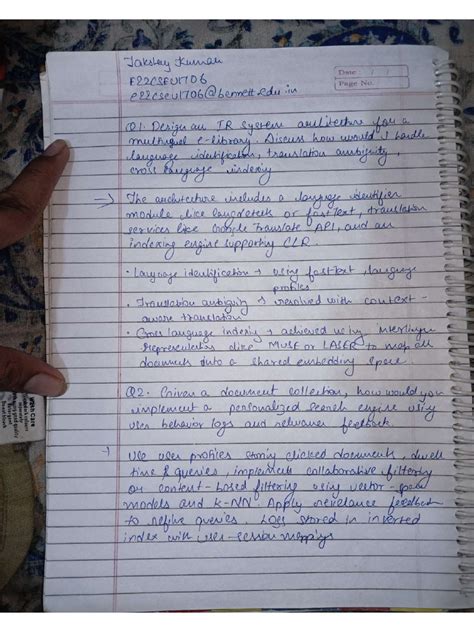 Takshay Kumar
E22CSEU1706
e22cseu1706@bennett.edu.in
Date :
Page No.
Q1. Design an IR System architecture for a
multilingual e-library. Discuss how would I handle
language identification, translation ambiguity,
cross language indexing
→ The architecture includes a language identifier
module like langdetect or fastText, translation
services like Google Translate API, and an
indexing engine supporting CLR.
• Language identification → using fastText, language
profiles
• Translation ambiguity → resolved with context-
aware translation
• Cross language indexing → achieved using Interlingua
Representations like MUSE or LASER to map all
documents into a shared embedding space.
Q2. Given a document collection, how would you
implement a personalized search engine using
user behavior logs and relevance feedback
→ Use user profiles storing clicked documents, dwell
time & queries, implement collaborative filtering
or content-based filtering using vector-space
models and k-NN. Apply relevance feedback
to refine queries. Logs stored in inverted
index with user-session mappings